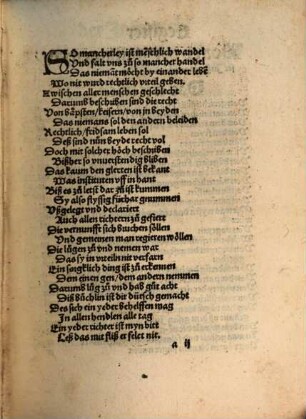 SO mancherley ist mēschlich wandel
Vnd falt vns zů so mancher handel
Das niemāt möcht by einander lebē
Wo nit wurd rechtlich vrteil geben.
Zwischen aller menschen geschlecht
Darumb beschriben sind die recht
Von bäpsten/keisern/von in beyden
Das niemans sol den andern beleiden
Rechtlich/fridsam leben sol
Deß sind nūn beyde recht vol
Doch mit solcher höch beschriben
Bißher so vnuerstendig bliben
Das kaum den glerten ist bekant
Was instituten vff in hant
Biß es zů letst dar zů ist kummen
Sy also flyssig fürhar gnummen
Vßgelegt vnd declariert
Auch allen richtern zů gefiert
Die vernunfft sich bruchen söllen
Vnd gemeinen man regieren wöllen
Die lügen zů vnd nemen war
Das sy in vrteiln nit verfarn
Ein sorgklich ding ist zů erkennen
Dem einen gen/dem andern nemmen
Darumb lůg zů vnd hab gůt acht
Diß bůchlin ist dir dütsch gemacht
Des sich ein yeder behelffen mag
In allen hendlen alle tag
Ein yeder richter ist myn bitt
Leß das mit fliß er felet nit.
a ij